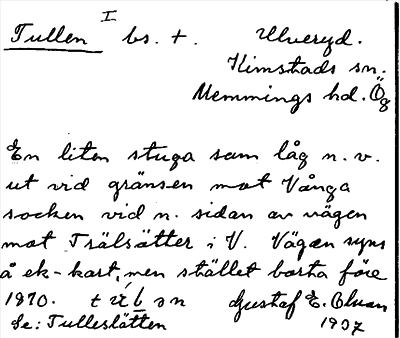 Tullen I bs. +. Ulveryd.
Kimstads sn.
Memmings hd. Ög
En liten stuga som låg n. v.
ut vid gränsen mot Vånga
socken vid n. sidan av vägen
mot Trälsätter i V. Vägen syns
å ek-kart, men stället borta före
1870. Gustaf E. Olsson
Se: Tulleslätten 1937